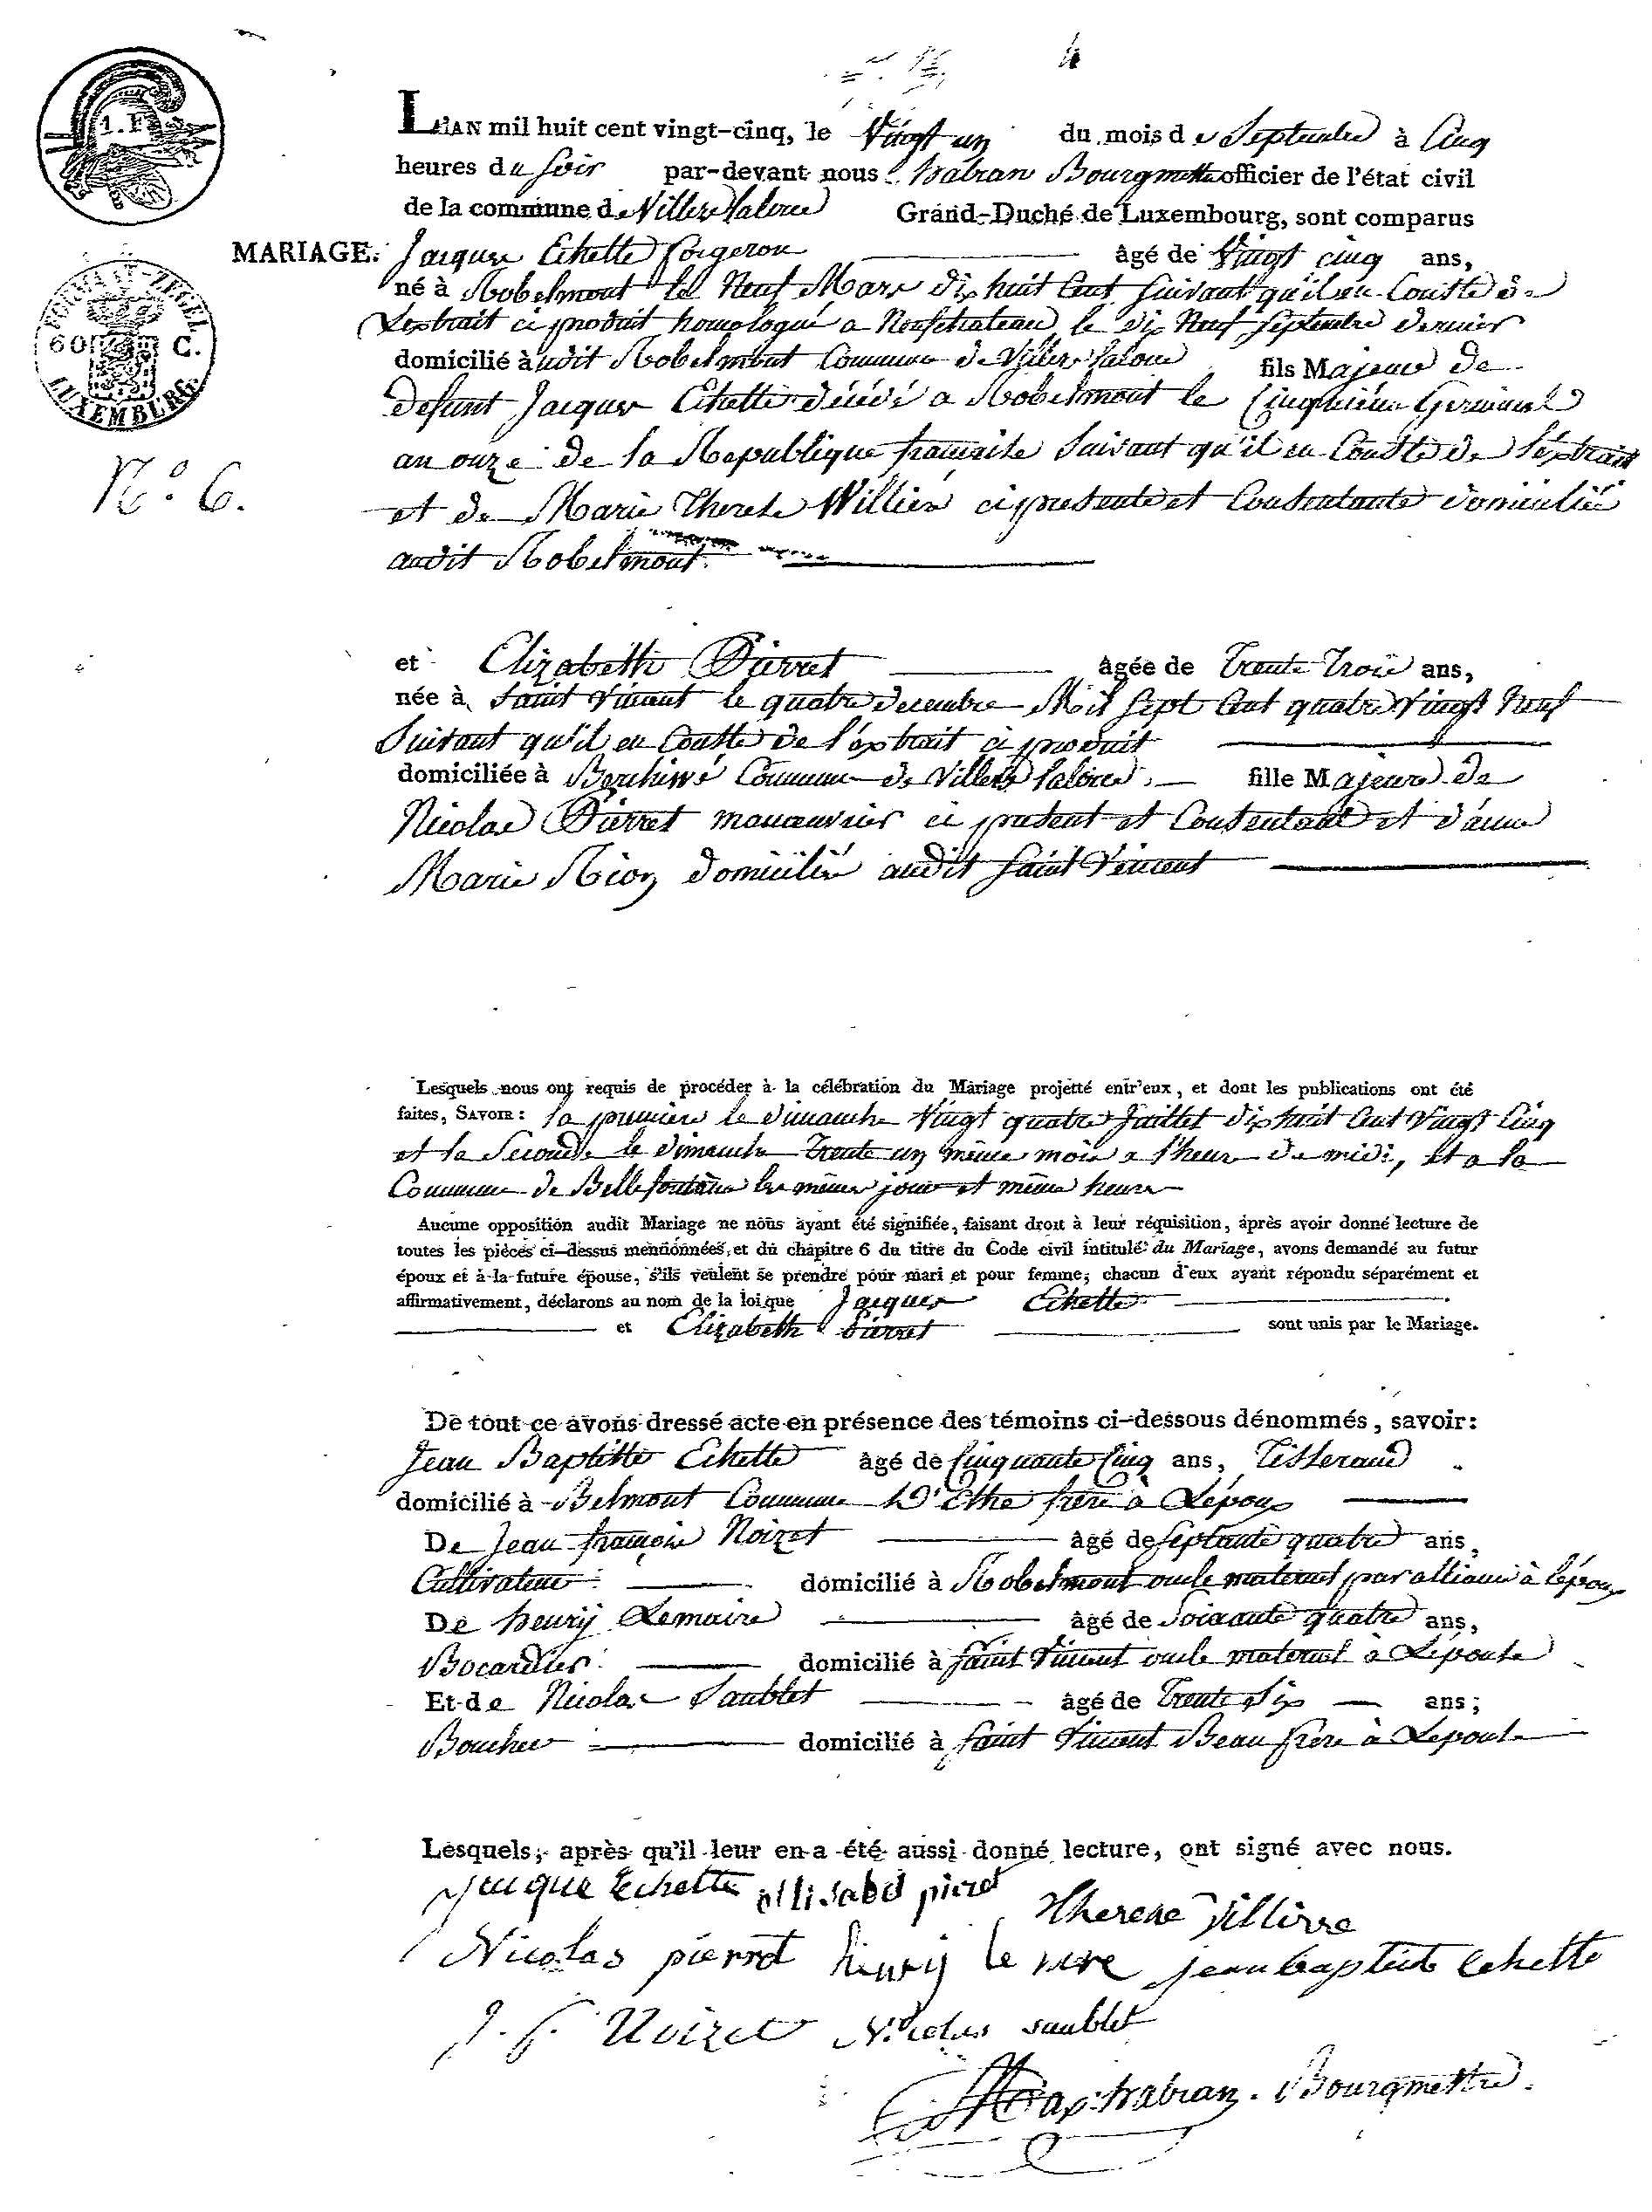 4
1. F
L'AN mil huit cent vingt-cinq, le Vingt un du mois de Septembre à Cinq
heures du Soir par-devant nous Bourgmettre officier de l'état civil
de la commune de Villers Laloue Grand-Duché de Luxembourg, sont comparus
MARIAGE. Jacques Echette forgeron âgé de Vingt cinq ans,
FORMAAT-ZEGEL
60 C.
LUXEMBURG
né à Robelmont le Neuf Mars dix huit Cent Suivant qu'il en Conste de
Lextrait ci produit homologué a Neufchateau le dix Neuf Septembre dernier
domicilié audit Robelmont Commune de Villers Laloue fils Majeur de
defunt Jacques Echette décédé a Robelmont le Cinquième Germinal
an onze de la Republique française Suivant qu'il en Conste de l'éxtrait
N.° 6.
et de Marie Therese Willièm ci presente et Consentante domiciliée
audit Robelmont.
et Elizabeth Pierret âgée de Trente Trois ans,
née à Saint Vincent le quatre decembre Mil Sept Cent quatre Vingt Neuf
Suivant qu'il en Conste de l'éxtrait ci produit
domiciliée à Berchiwé Commune de Villers Laloue fille Majeure de
Nicolas Pierret manoeuvrier ci present et Consentant et d'anne
Marie Rion domiciliés audit Saint Vincent
Lesquels nous ont requis de procéder à la célébration du Mariage projetté entr'eux, et dont les publications ont été
faites, SAVOIR : la premiere le dimanche Vingt quatre Juillet dix huit Cent Vingt Cinq
et la Seconde le dimanche Trente un même mois a l'heure de midi, et a la
Commune de Bellefontaine les mêmes jours et même heure
Aucune opposition audit Mariage ne nous ayant été signifiée, faisant droit à leur réquisition, après avoir donné lecture de
toutes les pièces ci-dessus mentionnées, et du chapitre 6 du titre du Code civil intitulé du Mariage, avons demandé au futur
époux et à la future épouse, s'ils veulent se prendre pour mari et pour femme; chacun d'eux ayant répondu séparément et
affirmativement, déclarons au nom de la loi que Jacques Echette
et Elizabeth Pierret sont unis par le Mariage.
De tout ce avons dressé acte en présence des témoins ci-dessous dénommés, savoir:
Jean Baptiste Echette âgé de Cinquante Cinq ans, Tisserand
domicilié à Belmont Commune D'Ethe frère à Lépoux
De Jean françois Noizet âgé de Septante quatre ans,
Cultivateur domicilié à Robelmont oncle maternel par alliance à lépoux
De henry Lemaire âgé de Soixante quatre ans,
Bocardier domicilié à Saint Vincent oncle maternel à Lépouse
Et de Nicolas Saublet âgé de Trente Six ans;
Boucher domicilié à Saint Vincent Beau frère à Lépouse
Lesquels, après qu'il leur en a été aussi donné lecture, ont signé avec nous.
Jacque Echette ellisabet pieret Therese Villirre
Nicolas pierret henry le mere jean baptiste Echette
J. f. Noizet Nicolas saublet
Bourgmettre